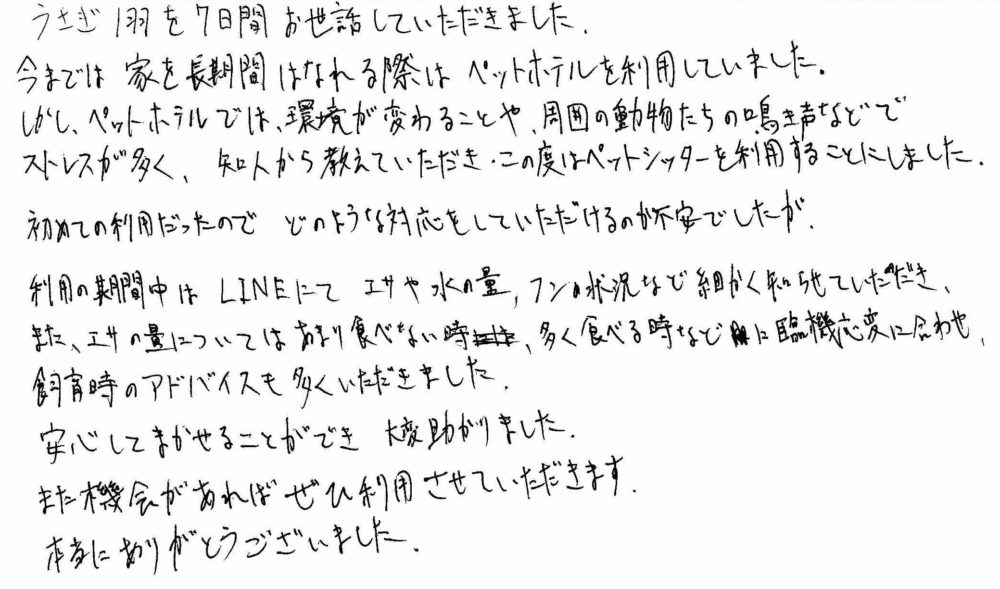 うさぎ1羽を7日間お世話していただきました.
今までは 家を長期間 はなれる際は ペットホテルを利用していました.
しかし、ペットホテルでは、環境が変わることや、周囲の動物たちの鳴き声などで
ストレスが多く、 知人から教えていただき.この度はペットシッターを利用することにしました.
初めての利用だったので どのような対応をしていただけるのか不安でしたが、
利用の期間中は LINEにて エサや水の量, フンの状況など細かく知らせていただき、
また、エサの量についてはあまり食べない時, 多く食べる時などに臨機応変に合わせ,
飼育時のアドバイスも多くいただきました.
安心してまかせることができ 大変助かりました.
また機会があれば ぜひ利用させていただきます.
本当にありがとうございました.